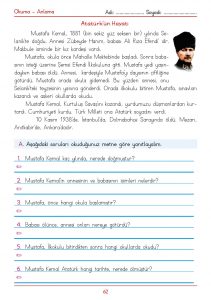 Okuma - Anlama Adı: Soyadı:
Atatürk'ün Hayatı
Mustafa Kemal, 1881 (bin sekiz yüz seksen bir) yılında Se-
lanik'te doğdu. Annesi Zübeyde Hanım, babası Ali Rıza Efendi' dir.
Makbule isminde bir kız kardeşi vardı.
Mustafa, okula önce Mahalle Mektebinde başladı. Sonra babası-
nın isteği üzerine Şemsi Efendi İlkokuluna gitti. Mustafa yedi yaşın-
dayken babası öldü. Annesi, kardeşiyle Mustafa'yı dayısının çiftliğine
götürdü. Mustafa orada okula gidemedi. Bu yüzden annesi, onu
Selanik'teki teyzesinin yanına gönderdi. Orada ilkokulu bitiren Mustafa, sınavları
kazandı ve askeri okullarda okudu.
Mustafa Kemal, Kurtuluş Savaşı'nı kazandı, yurdumuzu düşmanlardan kur-
tardı. Cumhuriyeti kurdu. Türk Milleti ona Atatürk soyadını verdi.
10 Kasım 1938'de, İstanbul'da, Dolmabahçe Sarayında öldü. Mezarı,
Anıtkabir'de, Ankara'dadır.
A. Aşağıdaki soruları okuduğunuz metne göre yanıtlayalım.
1. Mustafa Kemal kaç yılında, nerede doğmuştur?
2. Mustafa Kemal'in annesinin ve babasının isimleri nelerdir?
3. Mustafa, önce hangi okula başlamıştır?
4. Babası ölünce, annesi onları nereye götürdü?
5. Mustafa, İlkokulu bitirdikten sonra hangi okullarda okudu?
6. Mustafa Kemal Atatürk hangi tarihte, nerede ölmüştür?
62